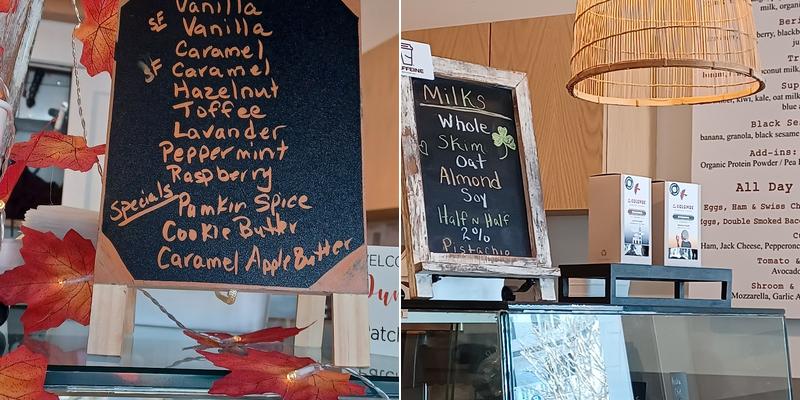 Vanilla
SF Vanilla
Caramel
SF Caramel
Hazelnut
Toffee
Lavander
Peppermint
Raspberry
Specials Pumkin Spice
Cookie Butter
Caramel Apple Butter
Milks
Whole
Skim
Oat
Almond
Soy
Half N Half
2%
Pistachio
milk, organ
Black Se
banana, granola, black sesame
Add-ins:
Organic Protein Powder / Pea
All Day
Eggs, Ham & Swiss
Eggs, Double Smoked Bac
Ham, Jack Cheese, Pepperon
Tomato &
Avocado
Shroom &
Mozzarella, Garlic A